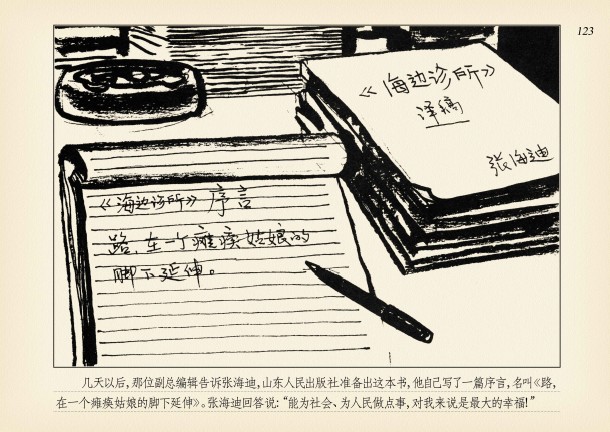 123
《海边诊所》
译稿
张海迪
《海边诊所》序言
路，在一个瘫痪姑娘的
脚下延伸。
几天以后，那位副总编辑告诉张海迪，山东人民出版社准备出这本书，他自己写了一篇序言，名叫《路，
在一个瘫痪姑娘的脚下延伸》。张海迪回答说：“能为社会、为人民做点事，对我来说是最大的幸福！”